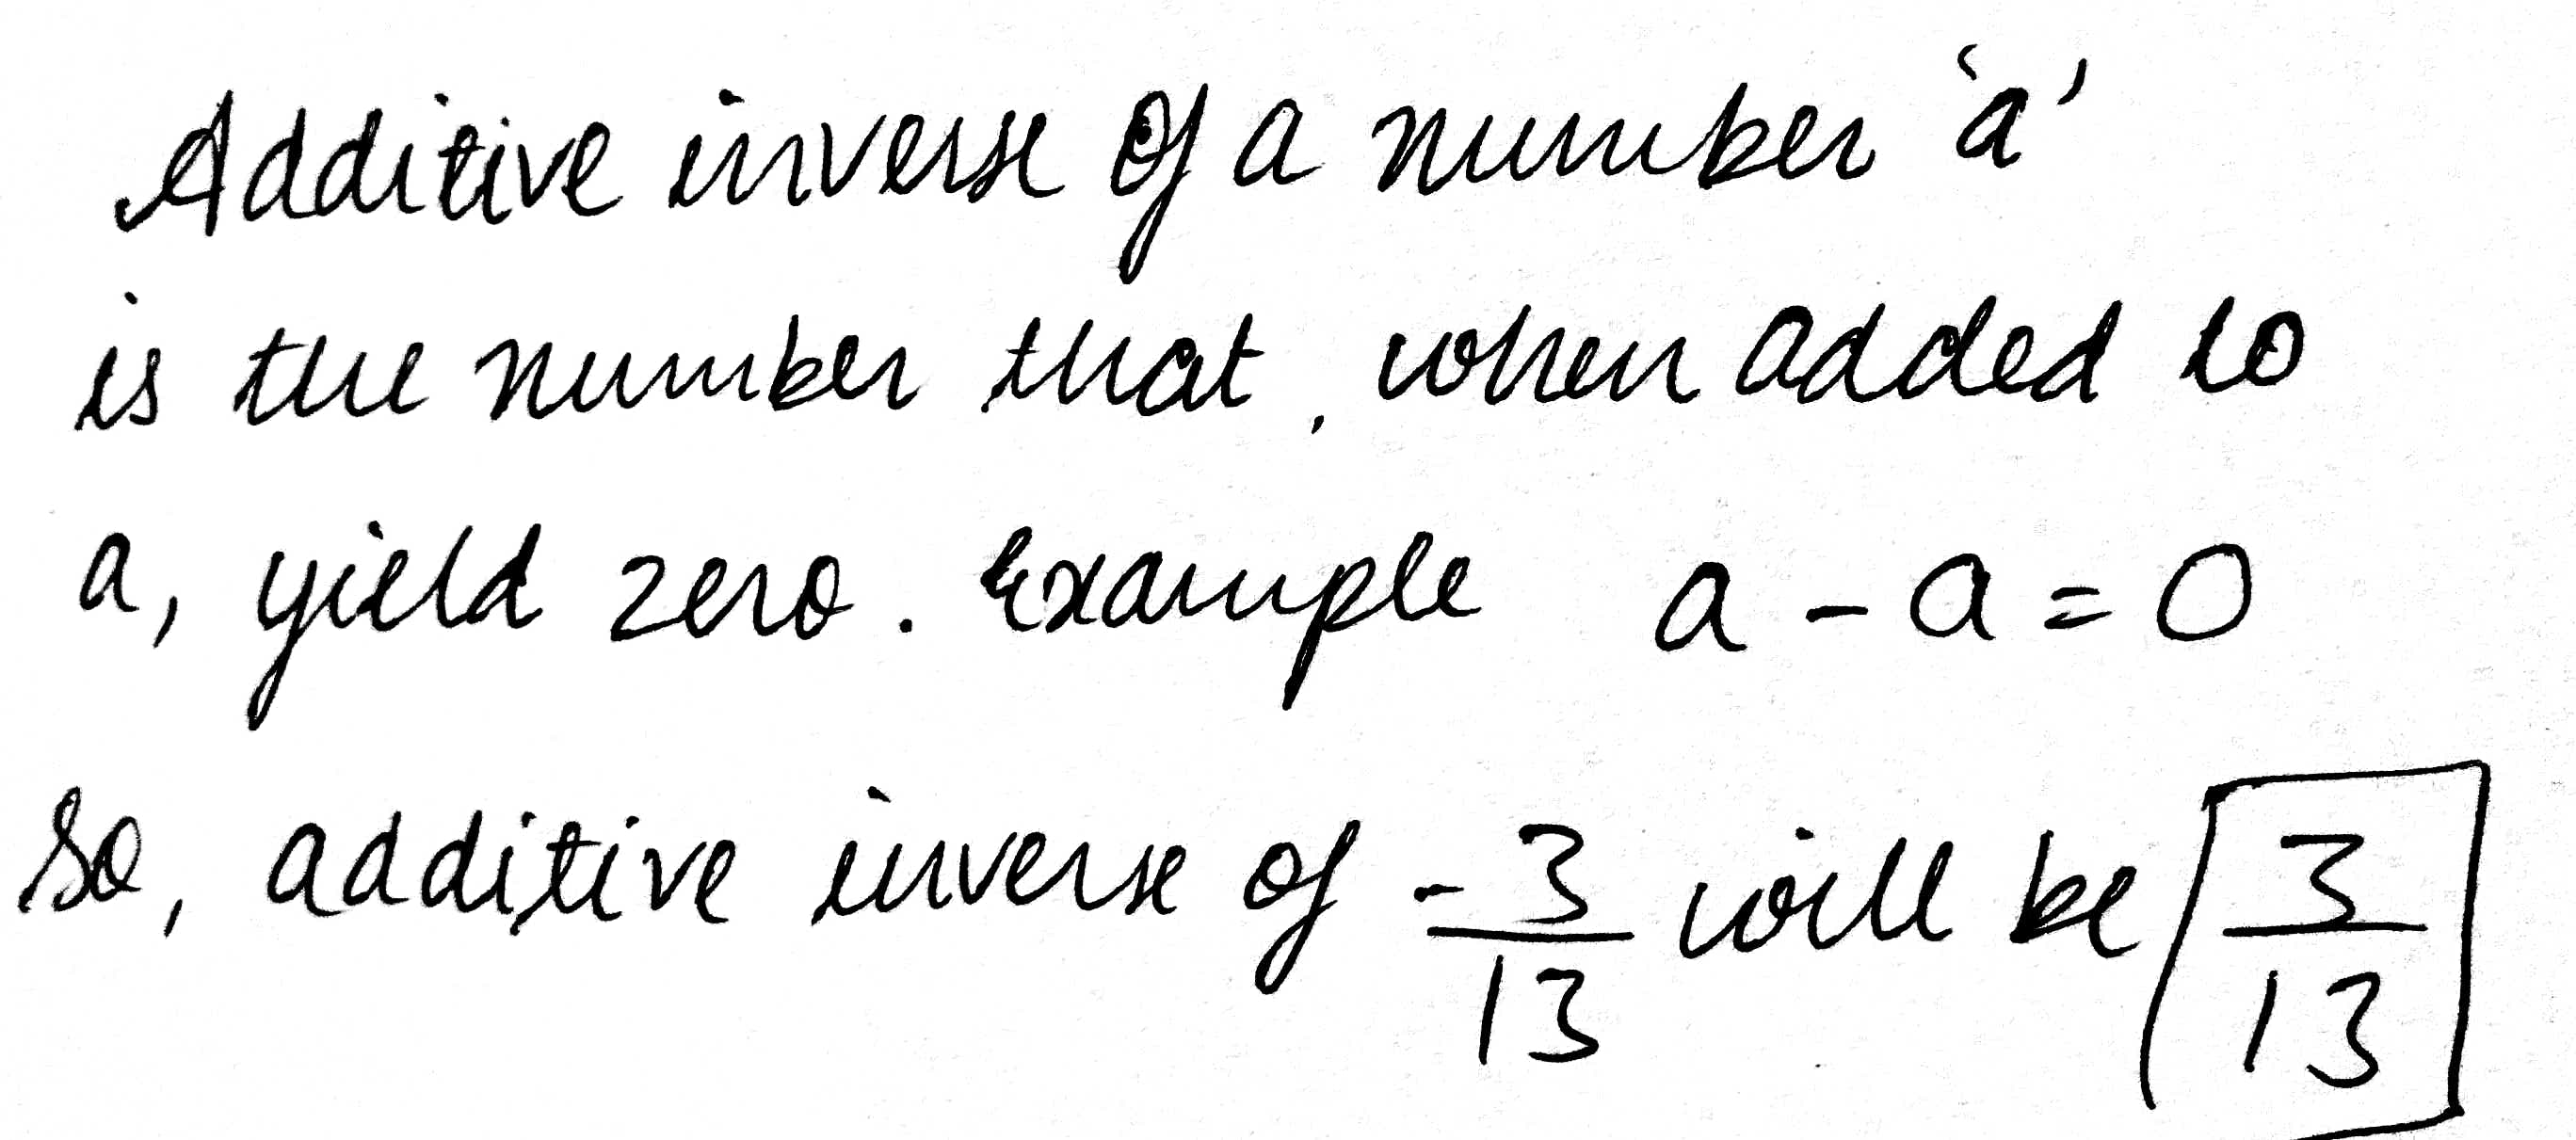 Additive inverse of a number 'a'
is the number that, when added to
a, yield zero. Example a - a = 0
So, additive inverse of -3/13 will be 3/13